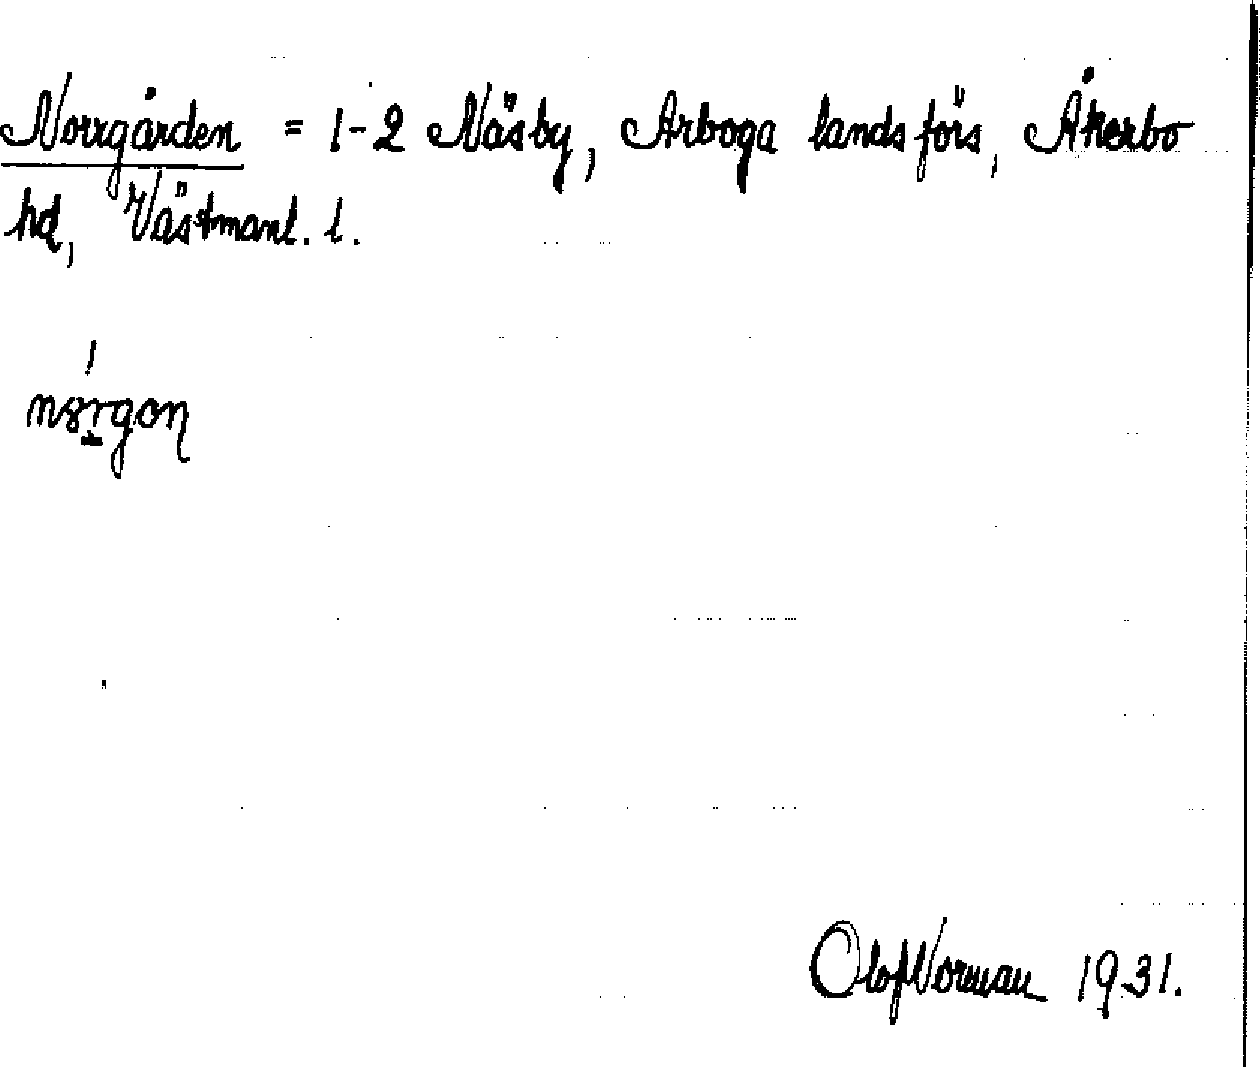 Norrgården = 1-2 Näsby, Arboga landsförs, Åkerbo
hd, Västmanl. l.
Olof Norman 1931.